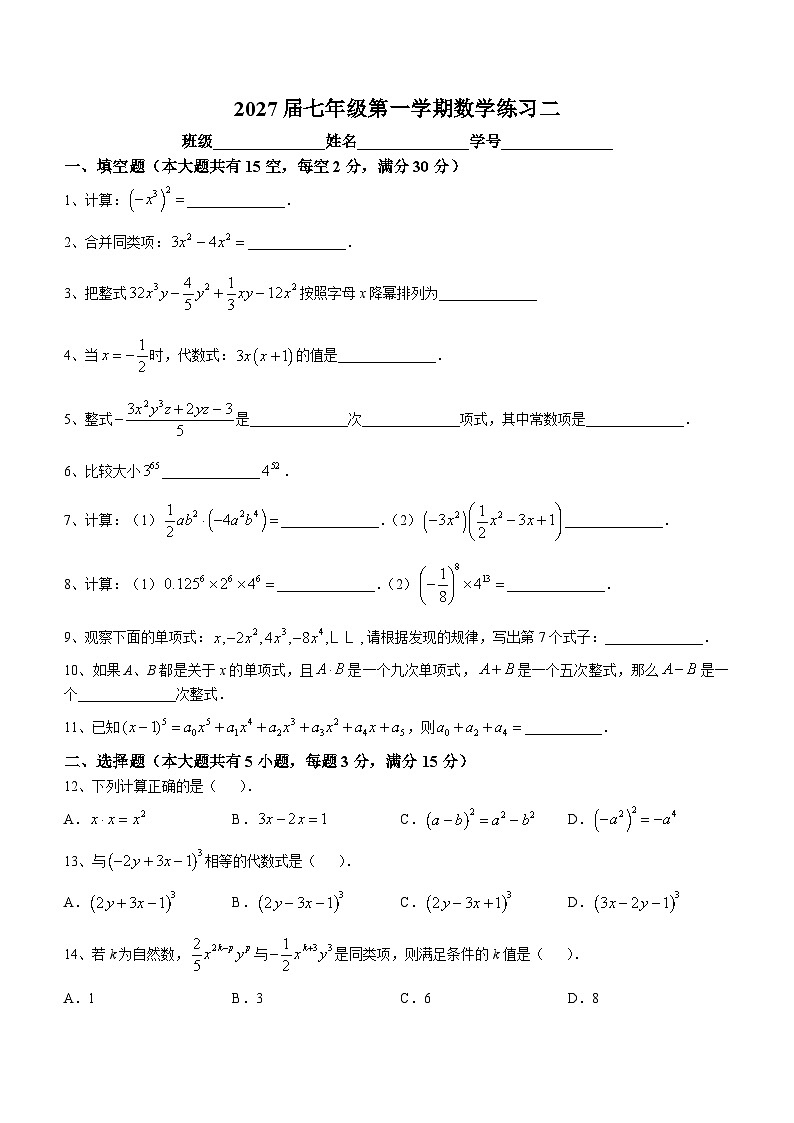 2027届七年级第一学期数学练习二
班级______________姓名______________学号______________
一、填空题（本大题共有15空，每空2分，满分30分）
1、计算：(-x³)²=______________．
2、合并同类项：3x²-4x²=______________．
3、把整式32x³y-4/5y²+1/3xy-12x²按照字母x降幂排列为______________
4、当x=-1/2时，代数式：3x(x+1)的值是______________．
5、整式-(3x²y³z+2yz-3)/5是______________次______________项式，其中常数项是______________．
6、比较大小3⁶⁵______________4⁵²．
7、计算：（1）1/2ab²·(-4a²b⁴)=______________．（2）(-3x²)(1/2x²-3x+1)______________．
8、计算：（1）0.125⁶×2⁶×4⁶=______________．（2）(-1/8)⁸×4¹³=______________．
9、观察下面的单项式：x,-2x²,4x³,-8x⁴,L L ,请根据发现的规律，写出第7个式子：______________．
10、如果A、B都是关于x的单项式，且A·B是一个九次单项式，A+B是一个五次整式，那么A-B是一
个______________次整式．
11、已知(x-1)⁵=a₀x⁵+a₁x⁴+a₂x³+a₃x²+a₄x+a₅，则a₀+a₂+a₄=___________．
二、选择题（本大题共有5小题，每题3分，满分15分）
12、下列计算正确的是（　）．
A．x·x=x² B．3x-2x=1 C．(a-b)²=a²-b² D．(-a²)²=-a⁴
13、与(-2y+3x-1)³相等的代数式是（　）．
A．(2y+3x-1)³ B．(2y-3x-1)³ C．(2y-3x+1)³ D．(3x-2y-1)³
14、若k为自然数，2/5x²ᵏ⁻ᵖyᵖ与-1/2xᵏ⁺³y³是同类项，则满足条件的k值是（　）．
A．1 B．3 C．6 D．8